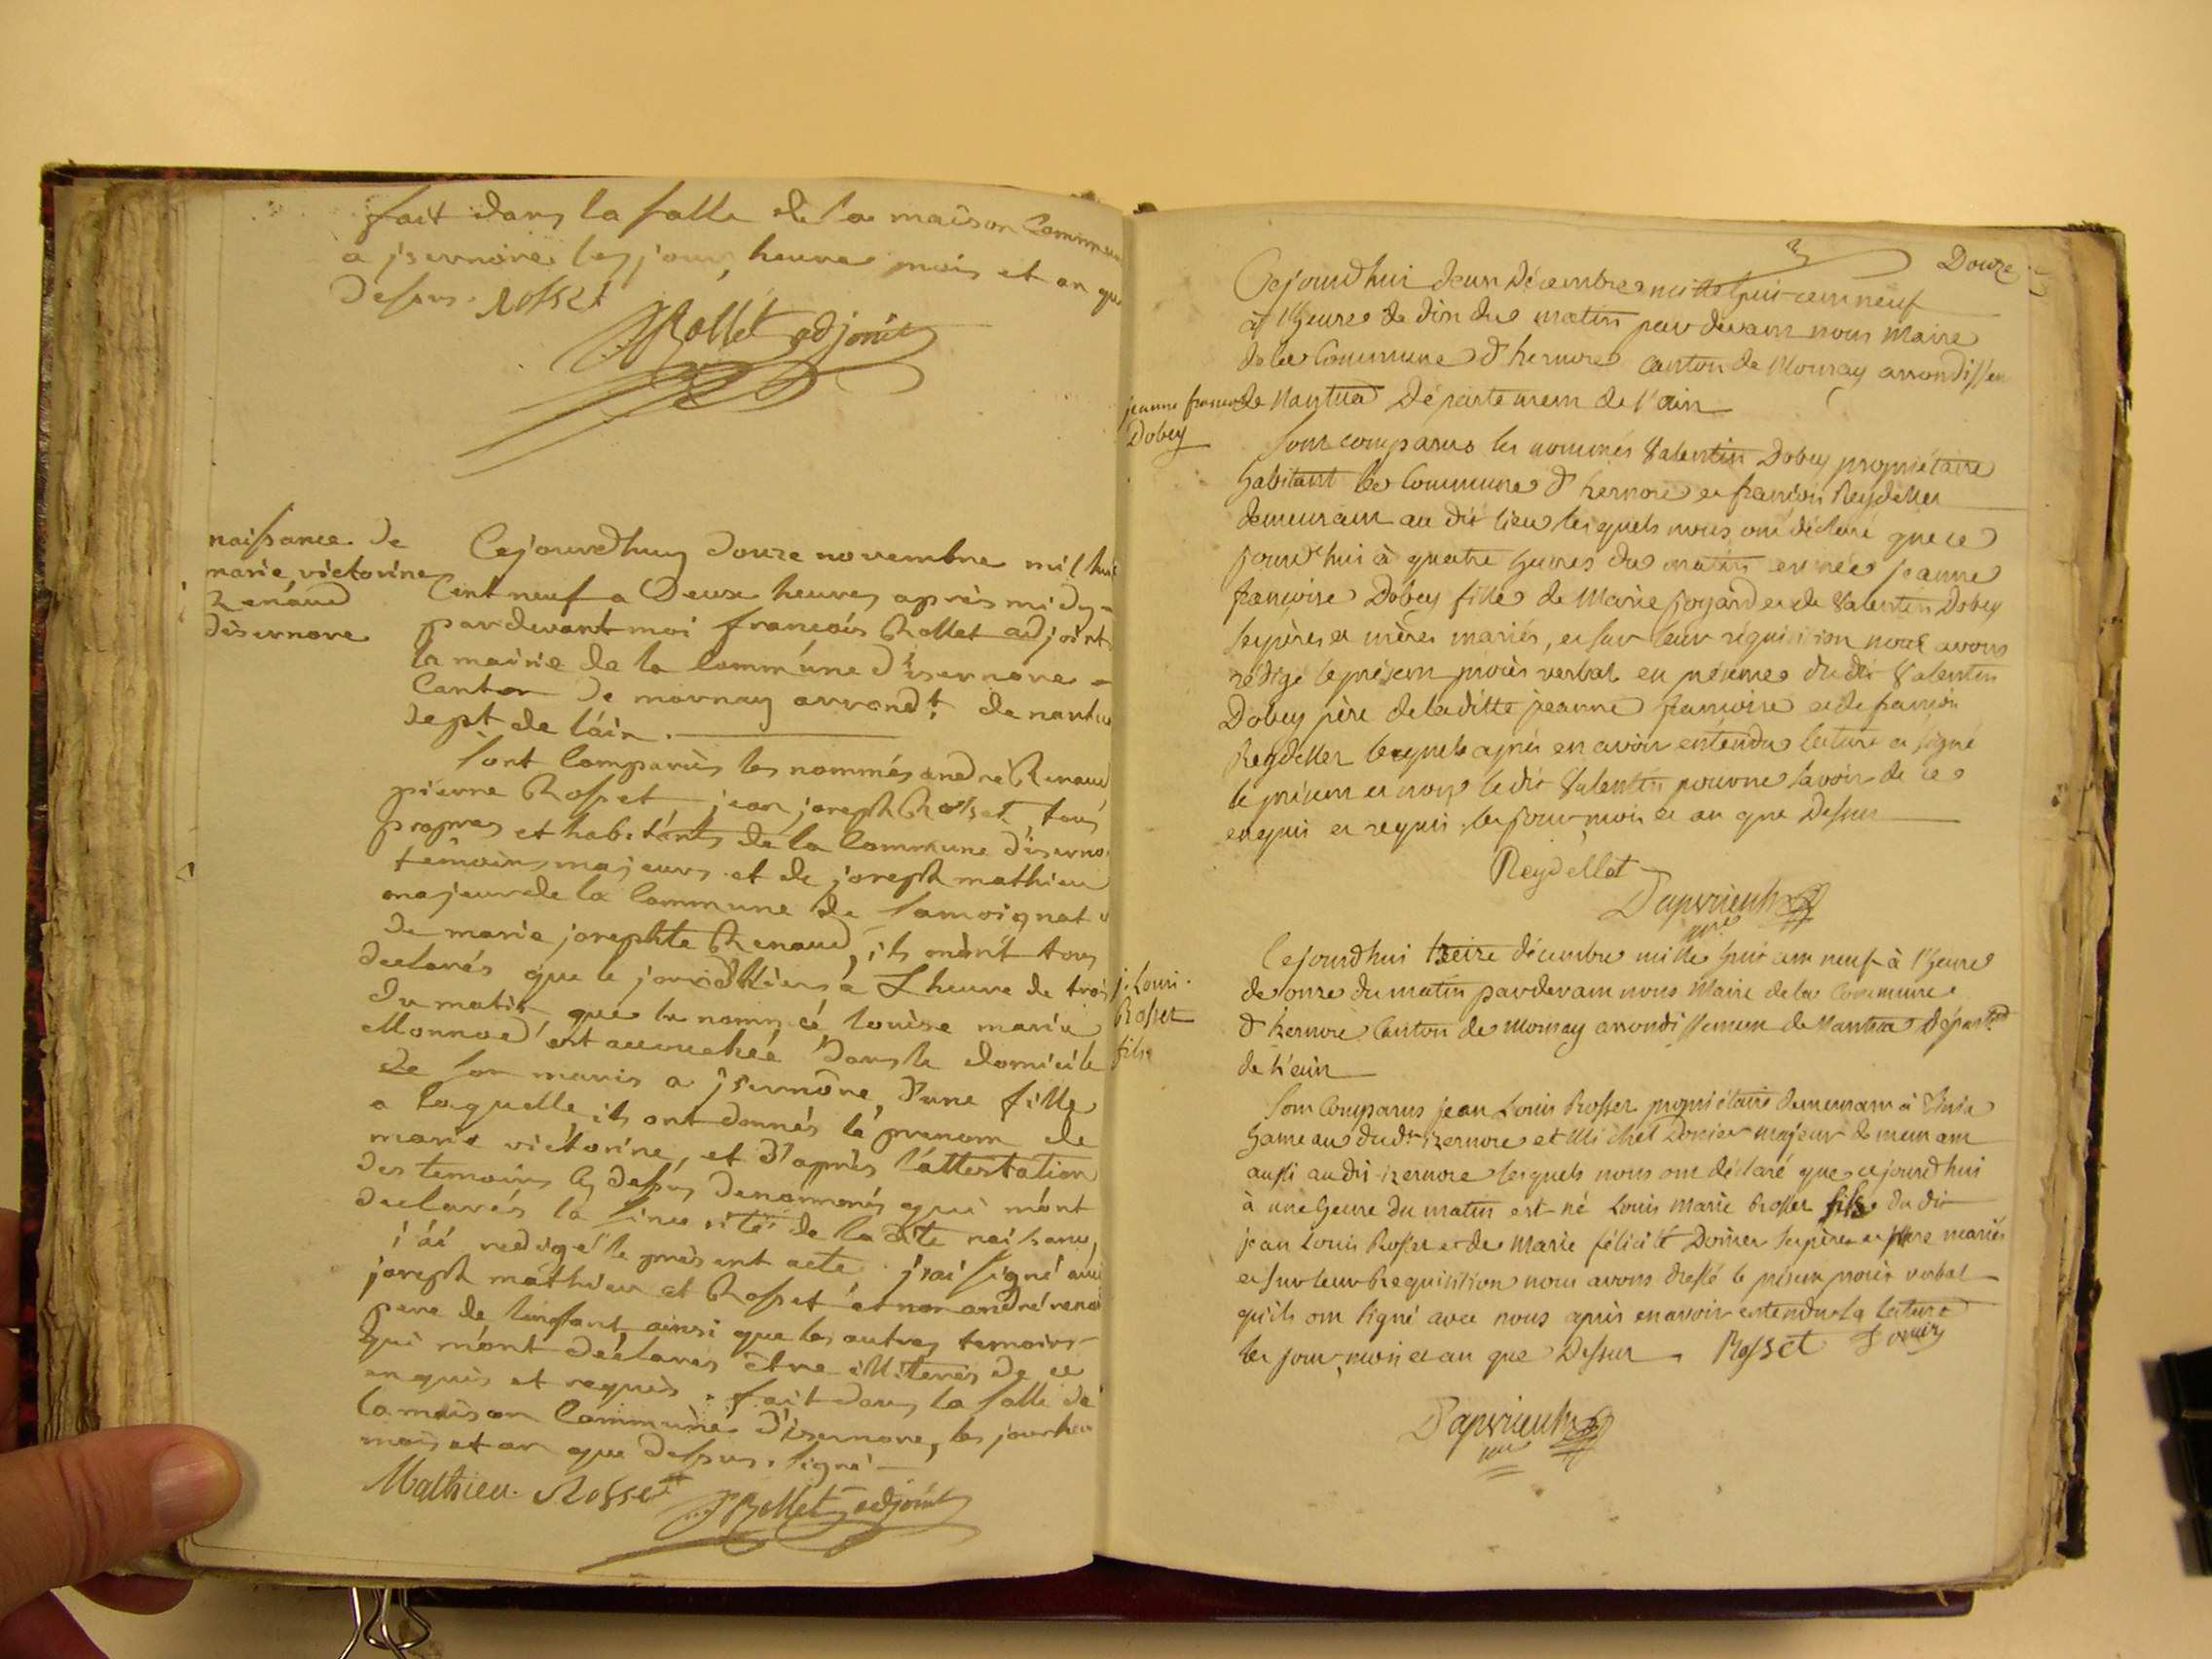 fait dans la salle de la maison Commune
a jsernore les jour, heure mois et an que
dessus. Rosset
Rollet adjoint
naissance de
marie victorine
Renaud
disernore
Cejourdhuy douze novembre mil huit
Cent neuf a Deux heures après midy
pardevant moi francois Rollet adjoint
la mairie de la Commune d'isernore
Canton de mornay arrondt. de nantua
dept de l'ain.
Sont Comparus les nommés andré Renaud
pierre Rosset, jean joseph Rosset, tous
propres et habitants de la Commune d'iserno
témoins majeurs et de joseph mathieu
majeur de la Commune de Samoignat
de marie josephte Renaud, ils m'ont tous
declarés que le jourdhiers à L'heure de trois
du matin que la nommée louise marie
Monnod est accouchée dans le domicile
de son maris a jsernore, d'une fille
a laquelle ils ont donnés le prenom de
marie victorine, et d'après l'attestation
des temoins cy dessus denommés qui m'ont
declarés la sincerité de la dite naissance,
j'ai redigé le present acte. j'ai signé avec
joseph mathieu et Rosset et non andré renaud
pere de l'enfant ainsi que les autres temoins
qui m'ont déclarés être illiterés de ce
enquis et requis. fait dans la salle de
la maison Commune d'isernore, les jour heur
mois et an que dessus. signé
Mathieu. Rosset Rollet adjoint
Douze
Cejourd'hui deux décembre mille huit cent neuf
à l'heure de dix du matin par devant nous Maire
de la Commune d'hernore Canton de Mornay arrondissem
de Nantua Département de l'ain
jeanne francoise
Dobey
Sont comparus les nommés Valentin Dobey propriétaire
habitant la Commune d'hernore et françois Reydellet
demeurant au dit lieu lesquels nous ont déclaré que ce
jourd'hui à quatre heures du matin est née jeanne
françoise Dobey fille de Marie Joyard et de Valentin Dobey
ses pères et mères mariés, et sur leur réquisition nous avons
rédigé le présent procès verbal en présence du dit Valentin
Dobey père de la ditte jeanne françoise et de françois
Reydellet lequel après en avoir entendu lecture a signé
le présent et non le dit Valentin pour ne savoir de ce
enquis et requis les jour mois et an que Dessus
Reydellet
j. Louis
Rosset
fils
Cejourdhui treize décembre mille huit cent neuf à l'heure
de onze du matin pardevant nous Maire de la Commune
d'hernore Canton de Mornay arrondissement de Nantua départ
de l'ain
Sont Comparus jean Louis Rosset propriétaire demeurant à
hameau dudt izernore et Michel majeur demeurant
aussi audit izernore lesquels nous ont déclaré que cejourdhui
à une heure du matin est né Louis Marie Rosset fils du dit
jean Louis Rosset et de Marie félicité ses père et mere mariés
et sur leur Requisition nous avons dressé le présent procès verbal
qu'ils ont signé avec nous après en avoir entendu la lecture
les jour, mois et an que Dessus. Rosset